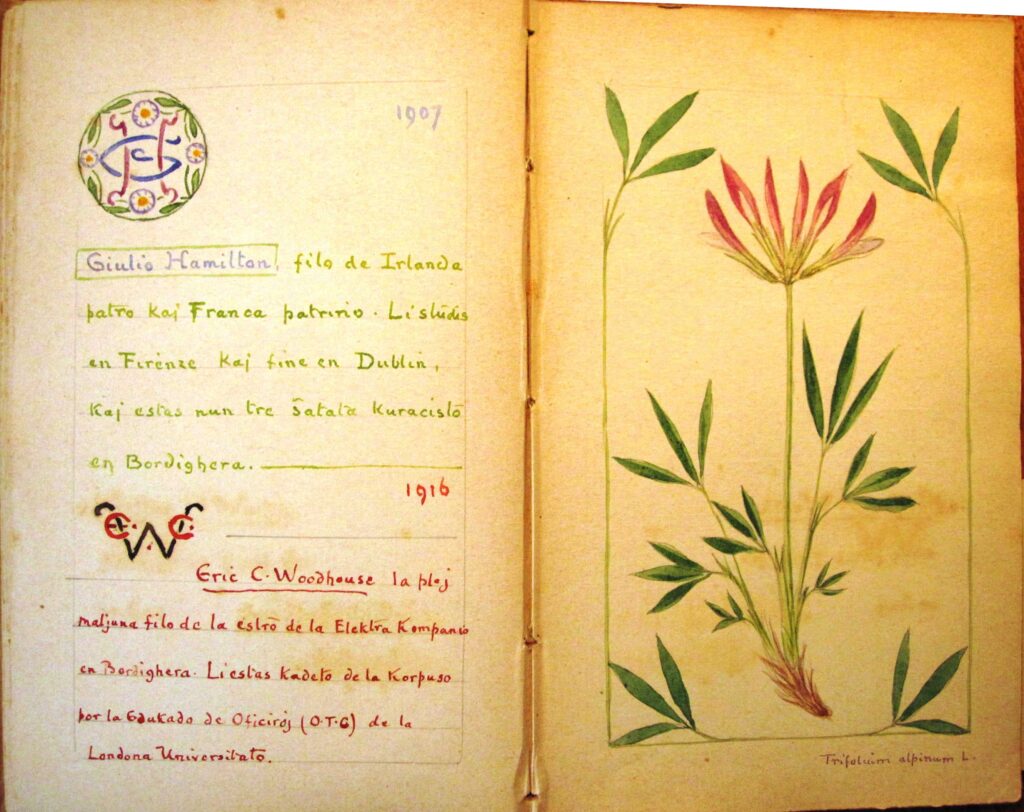 1907
Giulio Hamilton, filo de Irlanda
patro kaj Franca patrino. Li studis
en Firenze kaj fine en Dublin,
kaj estas nun tre ŝatata kuracisto
en Bordighera.
1916
EWC
Eric C. Woodhouse la plej
maljuna filo de la estro de la Elektra Kompanio
en Bordighera. Li estas kadeto de la Korpuso
por la Edukado de Oficiroj (O.T.C) de la
Londona Universitato.
Trifolium alpinum L.